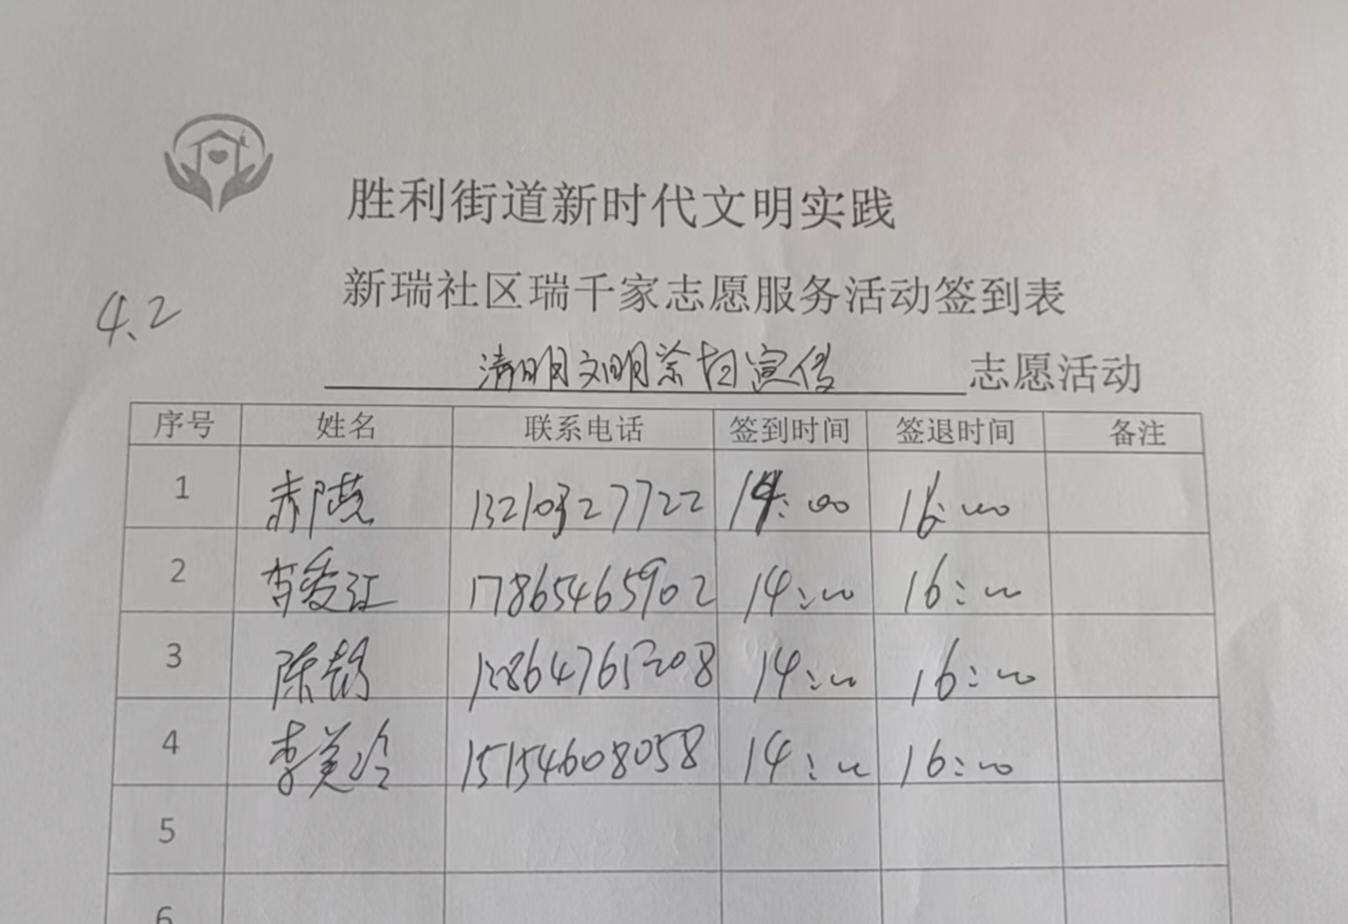 胜利街道新时代文明实践
新瑞社区瑞千家志愿服务活动签到表
4.2
清明文明祭扫宣传 志愿活动
序号 姓名 联系电话 签到时间 签退时间 备注
1 13210327722 14:00 16:00
2 17865465902 14:00 16:00
3 陈 13864765208 14:00 16:00
4 李美玲 15154608058 14:00 16:00
5
6